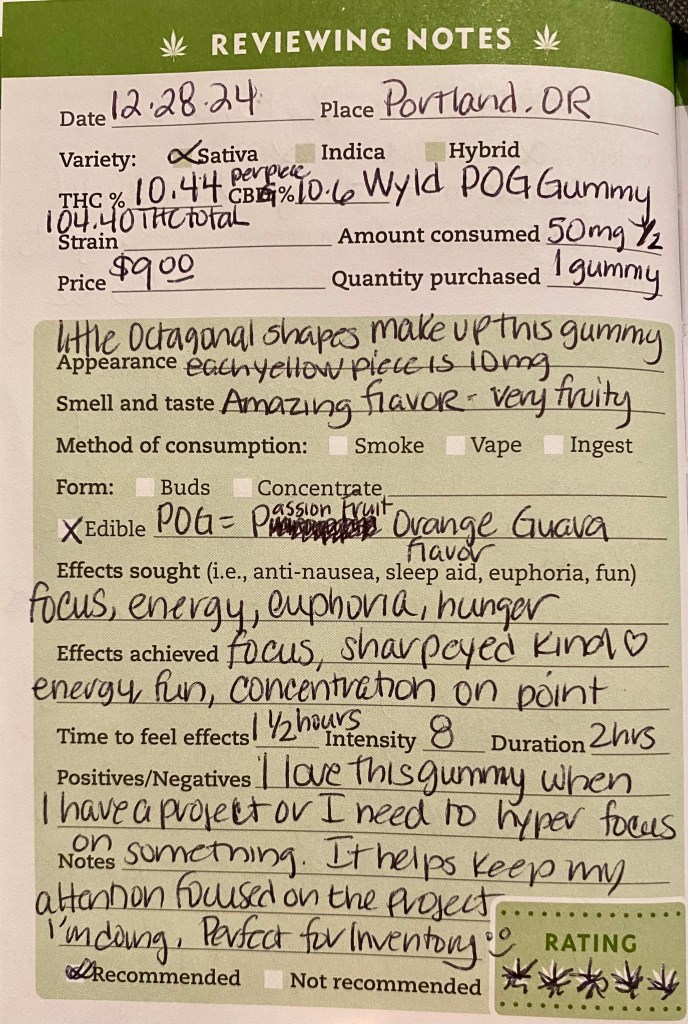 REVIEWING NOTES
Date 12.28.24 Place Portland, OR
Variety: Sativa Indica Hybrid
THC % 10.44 per piece CBG% 10.6 Wyld POG Gummy
104.40 THC total
Strain Amount consumed 50mg 1/2
Price $9.00 Quantity purchased 1 gummy
little Octagonal shapes make up this gummy
Appearance each yellow piece is 10mg
Smell and taste Amazing flavor - very fruity
Method of consumption: Smoke Vape Ingest
Form: Buds Concentrate
X Edible POG = Passion fruit Orange Guava
flavor
Effects sought (i.e., anti-nausea, sleep aid, euphoria, fun)
focus, energy, euphoria, hunger
Effects achieved focus, sharpeyed kind ♡
energy, fun, concentration on point
Time to feel effects 1 1/2 hours Intensity 8 Duration 2hrs
Positives/Negatives I love this gummy when
I have a project or I need to hyper focus
on
Notes something. It helps keep my
attention focused on the project
I'm doing. Perfect for Inventory ☺
RATING
Recommended Not recommended